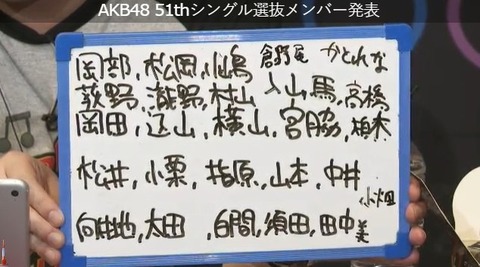 AKB48 51thシングル選抜メンバー発表
岡部, 松岡, 小嶋 倉野尾 かとれな
荻野, 瀧野, 村山 入山, 馬, 高橋
岡田, 込山, 横山, 宮脇, 柏木
松井, 小栗, 指原, 山本, 中井
小畑
向井地, 太田, 白間, 須田, 田中美